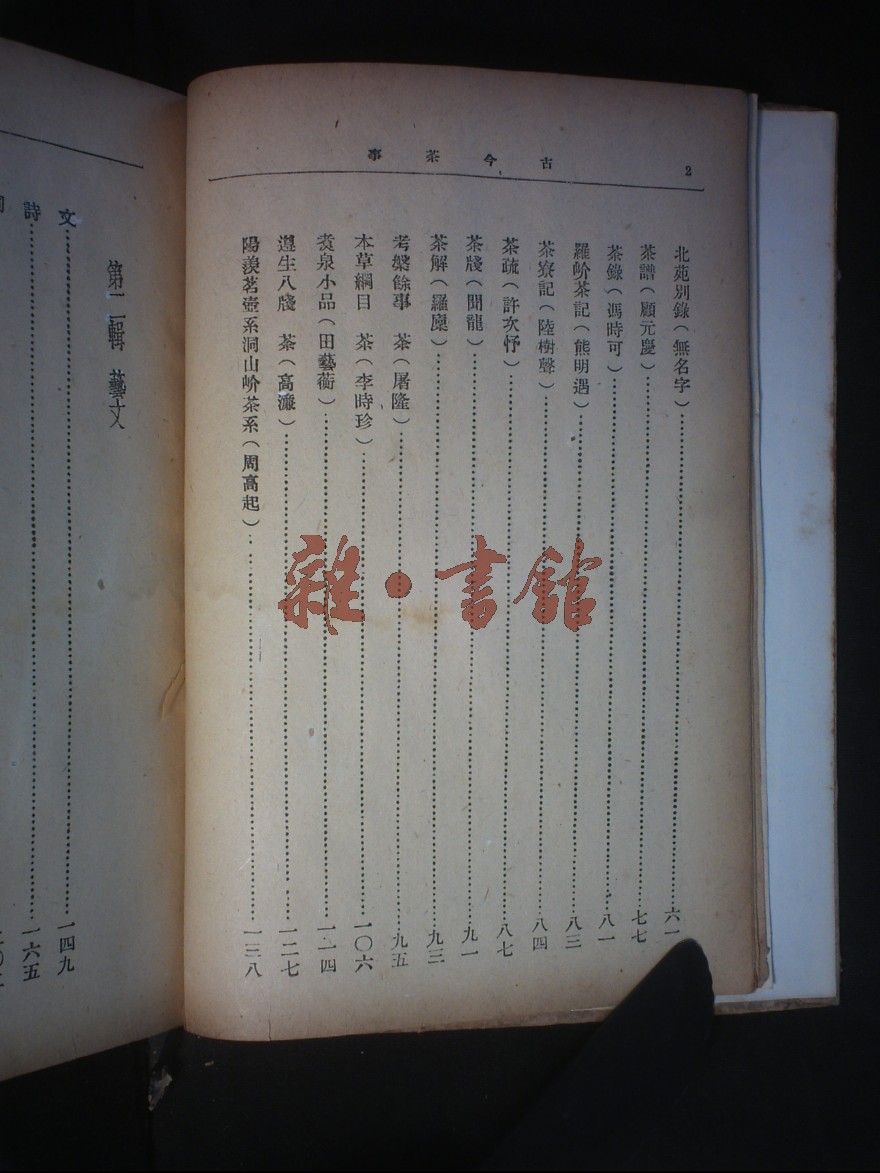 古今茶事
2
北苑別錄(無名字)……六一
茶譜(顧元慶)……七七
茶錄(馮時可)……八一
羅岕茶記(熊明遇)……八三
茶寮記(陸樹聲)……八四
茶疏(許次忬)……八七
茶牋(聞龍)……九一
茶解(羅廩)……九三
考槃餘事 茶(屠隆)……九五
本草綱目 茶(李時珍)……一〇六
煑泉小品(田藝蘅)……一二四
遵生八牋 茶(高濂)……一二七
陽羨茗壺系洞山岕茶系(周高起)……一三八
第二輯 藝文
文……一四九
詩……一六五
雜·書館